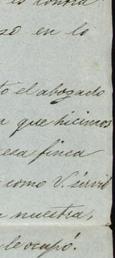 es contra
zo en lo
to el abogado
n que hicimos
esa finca
como V. servil
nuestra,
le ocupó.